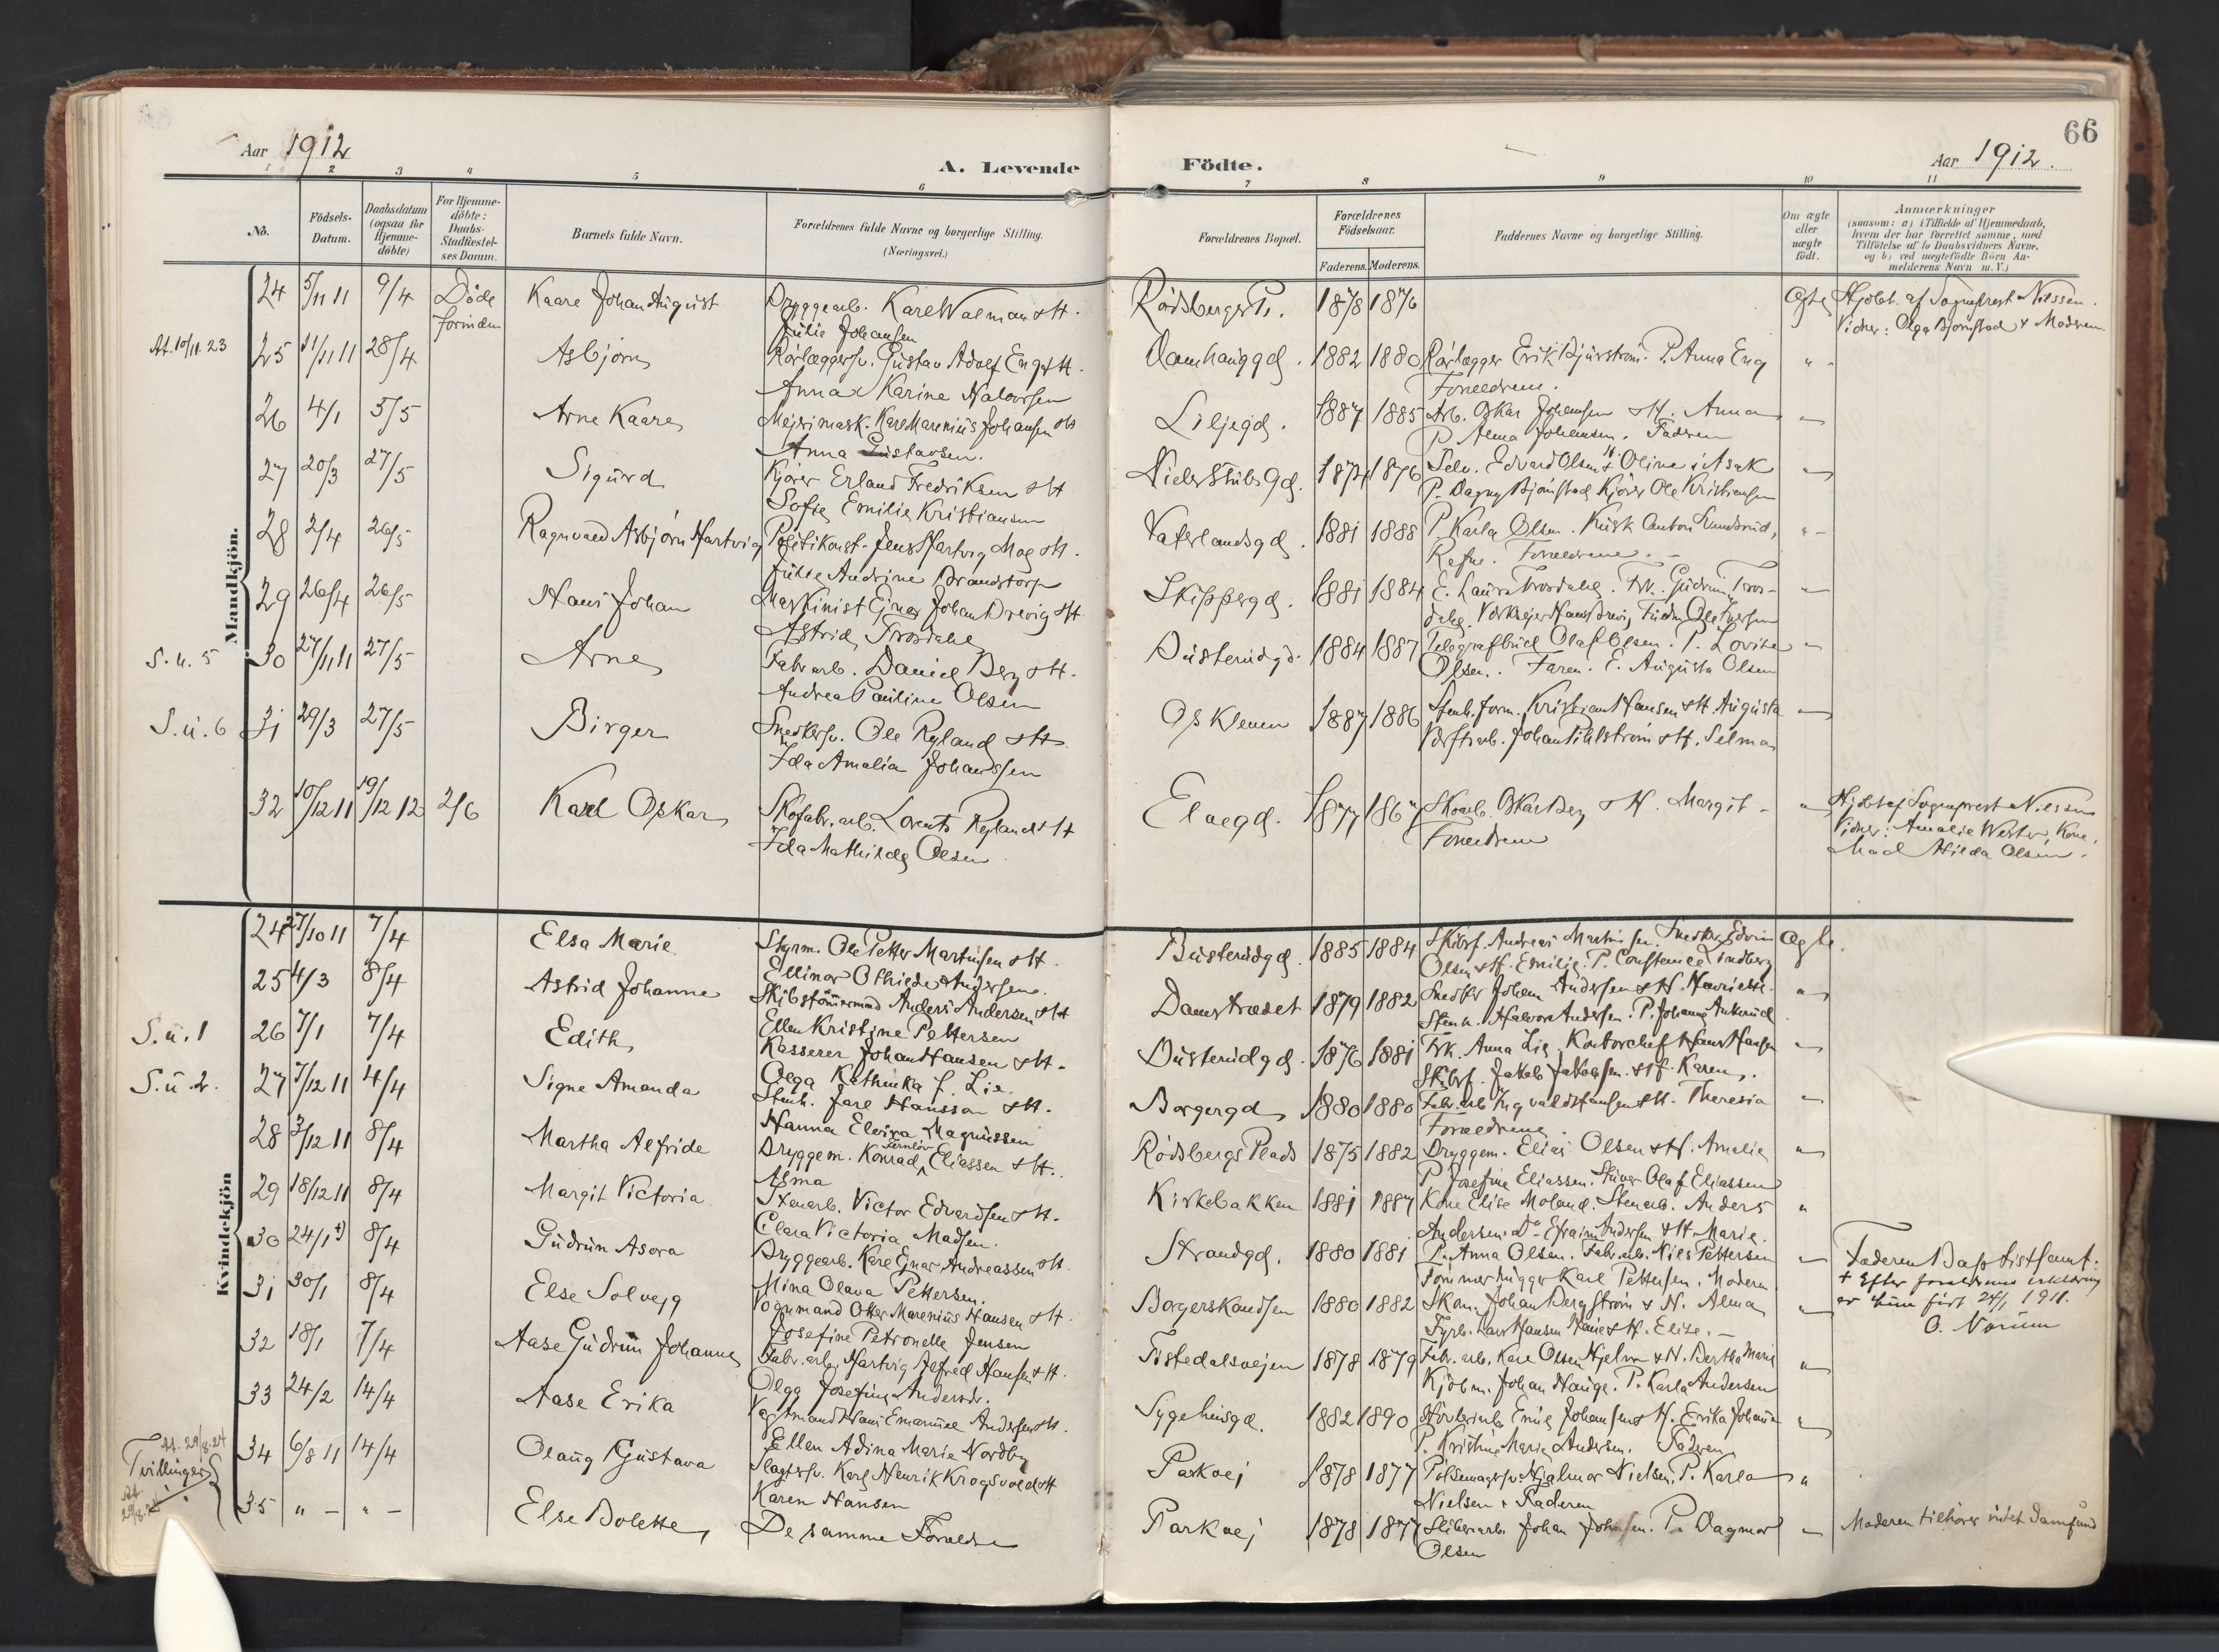 66
Aar 1912
A. Levende Födte.
Aar 1912.
1 2 3 4 5 6 7 8 9 10 11
No. Födsels-Datum. Daabsdatum (ogsaa for Hjemme-döbte) For Hjemme-döbte: Daabs-Stadfæstel-ses Datum. Barnets fulde Navn. Forældrenes fulde Navne og borgerlige Stilling. (Næringsvei.) Forældrenes Bopæl. Forældrenes Födselsaar. Faderens. Moderens. Faddernes Navne og borgerlige Stilling. Om ægte eller uægte födt. Anmærkninger (saasom: a) i Tilfælde af Hjemmedaab, hvem der har forrettet samme, med Tilföielse af to Daabsvidners Navne, og b) ved uægtefödte Börn An-melderens Navn m. V.)
Mandkjön.
24 5/11 11 9/4 Döde forinden Kaare Johan August Bryggearb. Karl Walman & H. Rödsbergs Pl. 1878 1876 Ægte Hjdbt. af Sogneprest Nilssen.
Julie Johansen Vidner: Olga Bjørnstad & Moderen.
At. 10/11. 23 25 11/11 11 28/4 Asbjörn Rörlæggersv. Gustav Adolf Eng & H. Damhauggd. 1882 1880 Rörlægger Erik Bjurström. P. Anna Eng " -
Anna Karine Halvorsen Forældrene.
26 4/1 5/5 Arne Kaare Mejerimask. Karl Marenius Johansen & H Liljegd. 1887 1885 Arb. Oskar Johansen & H. Anna -
Anna Gustavsen. P. Alma Johansen. Faderen
27 20/3 27/5 Sigurd Kjörer Erland Fredriksen & H Niels Stubs Gd. 1874 1876 Selv. Edvard Olsen & H. Oline i Asak -
Sofie Emilie Kristiansen P. Dagny Bjönstad Kjörer Ole Kristiansen
28 2/4 26/5 Ragnvald Asbjörn Hartvig Politikonst. Jens Hartvig Moe & H. Vaterlandsgd. 1881 1888 P. Karla Olsen. Kusk Anton Lundsrud, " -
Julie Andrine Brandstorp Refne. Forældrene. -
29 26/4 26/5 Hans Johan Maskinist Ejnar Johan Brevig & H. Skippergd. 1881 1884 E. Laura Trosdahl. Frk. Gudrun Tros- -
Astrid Trosdahl dahl.
S. u. 5 30 27/11 11 27/5 Arne Fabr arb. Daniel Berg & H. Busterudgd. 1884 1887 Telegrafbud Olaf Olsen. P. Lovise -
Andrea Pauline Olsen Olsen. Faren. E. Augusta Olsen
S. u. 6 31 29/3 27/5 Birger Snedkersv. Ole Ryland & H. Os Kleven 1887 1886 Stenh. form. Kristian Hansen & H. Augusta -
Ida Amalia Johanssen Værftsarb. Johan Pihlström & H. Selma
32 10/12 11 19/12 12 2/6 Karl Oskar Skofabr. arb. Lorents Ryland & H Elvegd. 1877 1867 Skoarb. Oskar Berg & H. Margit - - Hjdbt af Sogneprest Nilssen
Ida Mathilde Olsen Forældrene Vidner: Amalie Wester, Kone,
Mad Hilda Olsen.
Kvindekjön
24 27/10 11 7/4 Elsa Marie Styrm. Ole Petter Martinsen & H. Busterudgd. 1885 1884 Skibsf. Andreas Martinsen. Snedker Edvin Ægte.
Ellinor Othilde Andersen. Olsen & H. Emilie. P. Constance Lindberg
25 4/3 8/4 Astrid Johanne Skibstömmermand Anders Andersen & H Damstrædet 1879 1882 Snedker Johan Andersen & H. Henriette. -
Ellen Kristine Pettersen Stenh. Halvor Andersen. P. Johanne Ankerud
S. u. 1 26 7/1 7/4 Edith Kasserer Johan Hansen & H. Busterudgd. 1876 1881 Frk. Anna Lie. Kontorchef Hans Hansen -
Olga Kathinka f. Lie. Skibsf. Jakob Jakobsen & H. Karen.
S. u 2. 27 7/12 11 4/4 Signe Amanda Stenh. Jarl Hansson & H. Borgergd 1880 1880 Fabr. arb Ingvald Hansen & H. Theresia -
Hanna Elvira Magnussen Forældrene.
28 3/12 11 8/4 Martha Alfride Bryggem. Konrad Eliassen & H. Rödsbergs Plads 1875 1882 Bryggem. Elias Olsen & H. Amalie -
Asma P. Josefine Eliassen. Olaf Eliassen
29 18/12 11 8/4 Margit Victoria Stenarb. Victor Edvardsen & H. Kirkebakken 1881 1887 Kone Elise Moland. Stenarb. Anders "
Clara Victoria Madsen. Andersen. Do Efraim Andersen & H. Marie.
30 24/1 +) 8/4 Gudrun Asora Bryggearb. Karl Ejnar Andreassen & H. Strandgd. 1880 1881 P. Anna Olsen. Fabr. arb. Nils Pettersen - Faderen Baptistsamf:
Mina Olava Pettersen. Tömmerhugger Karl Pettersen. Moderen + Efter forældrenes erklæring
31 30/1 8/4 Else Solvejg Vognmand Otter Marenius Hansen & H. Borgerskansen 1880 1882 Skom. Johan Bergström & H. Alma - er hun født 24/1 1911.
Josefine Petronelle Jensen Fyrb. Lars Hansen & H. Elise. - O. Norum
32 18/1 7/4 Aase Gudrun Johanne Fabr. arb. Hartvig Alfred Hansen & H. Tistedalsvejen 1878 1879 Fabr. arb. Karl Olsen Hjelm & H. Bertha Marie "
Olga Josefine Andersdr. Kjöbm. Johan Hauge. P. Karla Andersen
33 24/2 14/4 Aase Erika Vegtmand Hans Emanuel Andersen & H. Sygehusgd. 1882 1890 Emil Johansen & H. Erika Johanne -
Ellen Adina Marie Nordby P. Kristine Marie Andersen. Faderen
At. 29/8. 24 34 6/8 11 14/4 Olaug Gustava Slagtersv. Karl Henrik Krogsvold & H Parkvej 1878 1877 Pölsemagersv. Hjalmar Nielsen. P. Karla "
Tvillinger Karen Hansen Nielsen & Faderen
At 29/8. 24 35 " - " - Else Bolette De samme Forældre Parkvej 1878 1877 Sliberiarb. Johan Johnsen. P. Dagmar - Moderen tilhører intet Samfund
Olsen